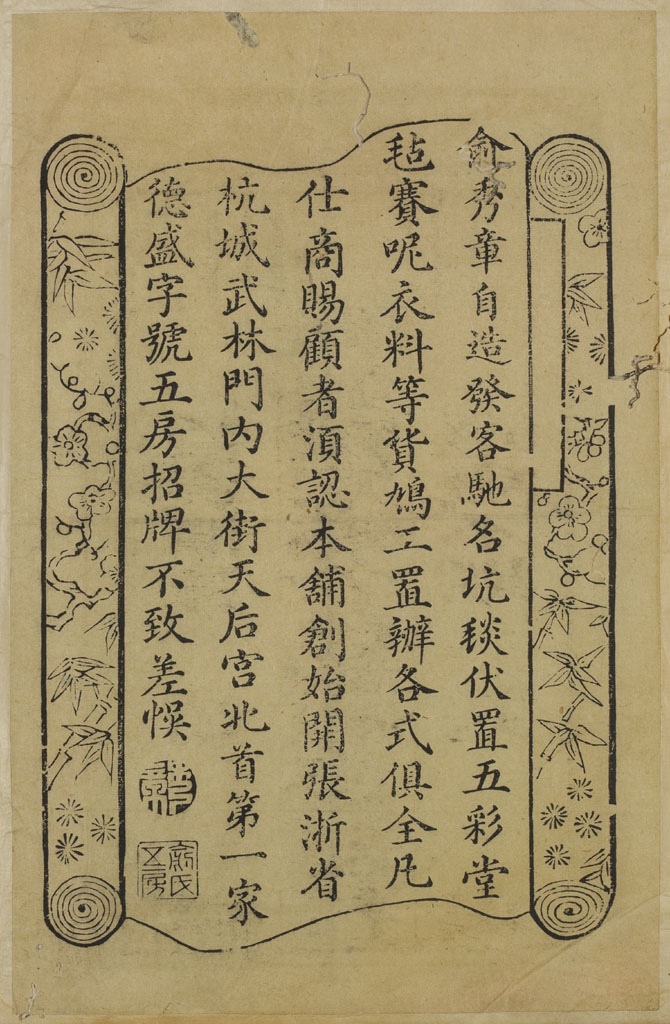 俞秀章自造發客馳名坑毯伏置五彩堂
毡賽呢衣料等貨鳩工置辦各式俱全凡
仕商賜顧者湏認本舖創始開張浙省
杭城武林門内大街天后宫北首第一家
德盛字號五房招牌不致差悞
俞氏五房